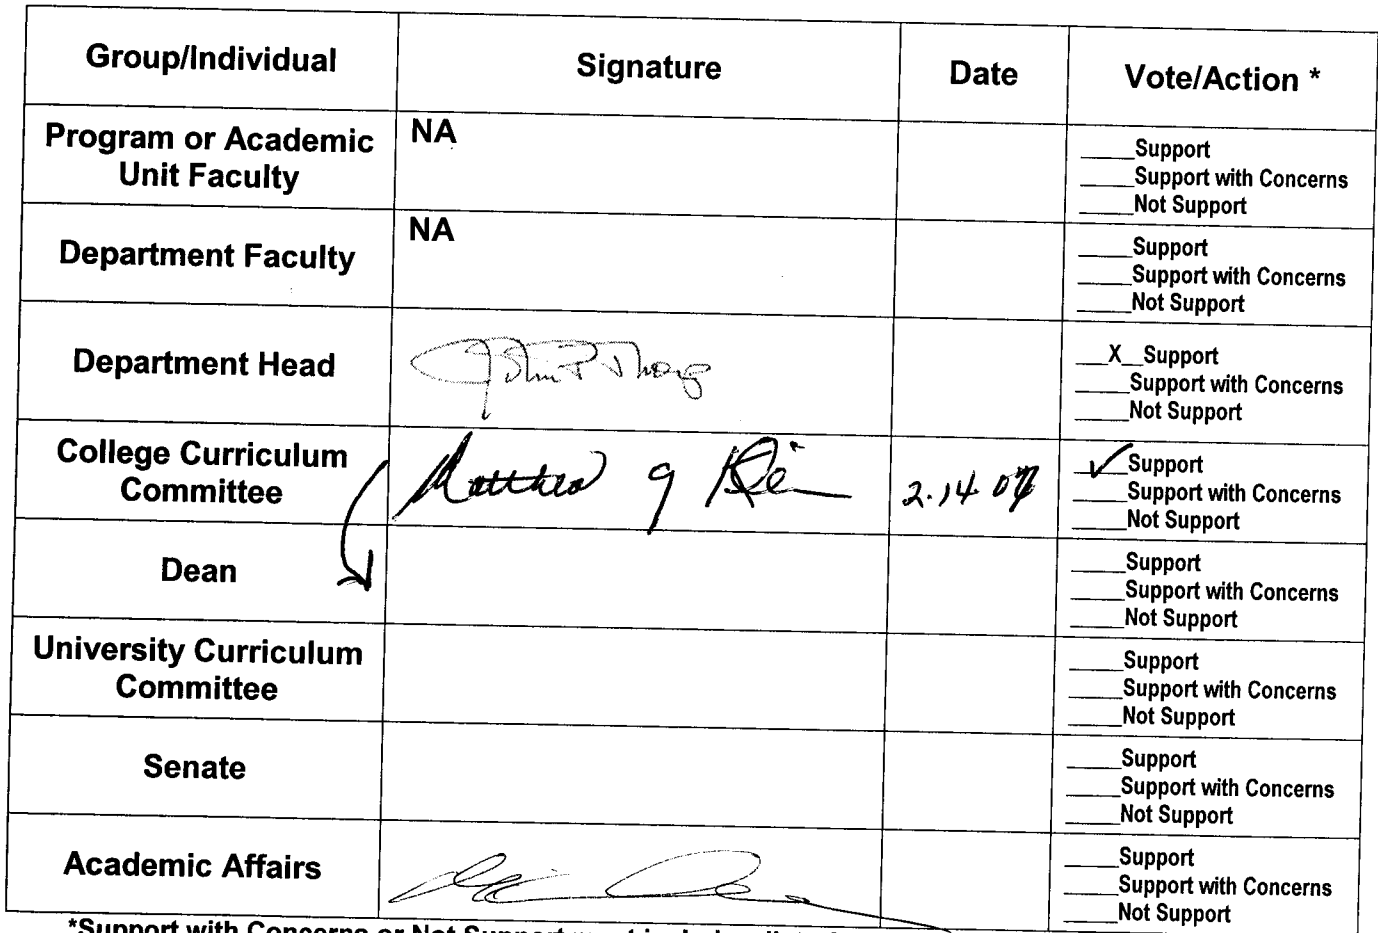 Group/Individual Signature Date Vote/Action *
Program or Academic Unit Faculty NA
____Support
____Support with Concerns
____Not Support
Department Faculty NA
____Support
____Support with Concerns
____Not Support
Department Head
__X__Support
____Support with Concerns
____Not Support
College Curriculum Committee Matthew 2.14 07
✓Support
____Support with Concerns
____Not Support
Dean
____Support
____Support with Concerns
____Not Support
University Curriculum Committee
____Support
____Support with Concerns
____Not Support
Senate
____Support
____Support with Concerns
____Not Support
Academic Affairs
____Support
____Support with Concerns
____Not Support
*Support with Concerns or Not Support must include